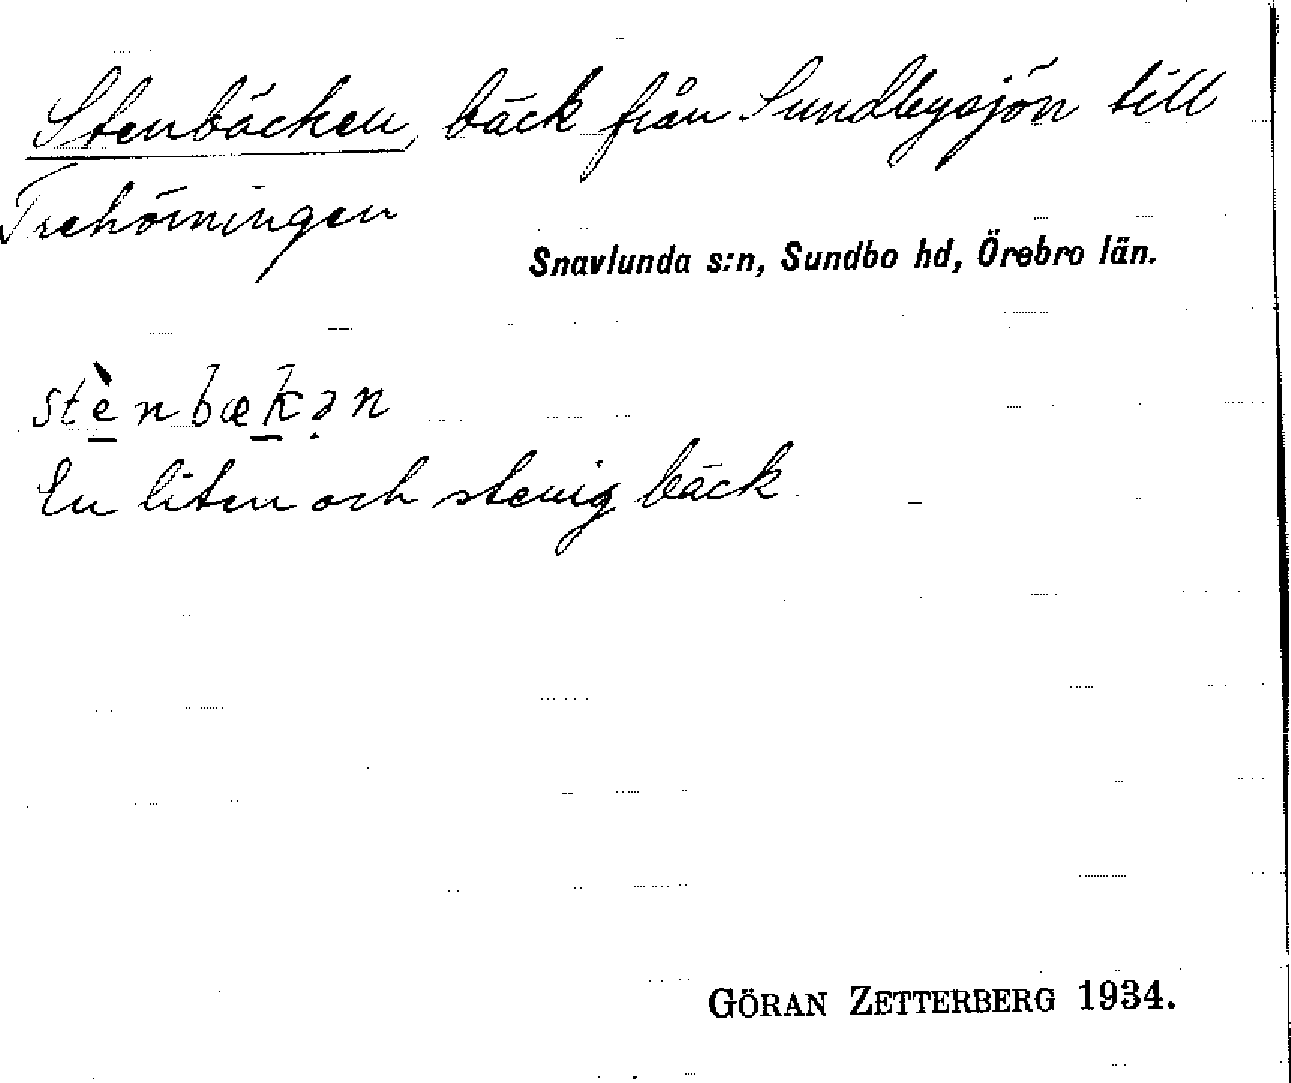 Stenbäcken, bäck från Sundbysjön till
Trehörningen
Snavlunda s:n, Sundbo hd, Örebro län.
stènbækən
En liten och stenig bäck
GÖRAN ZETTERBERG 1934.